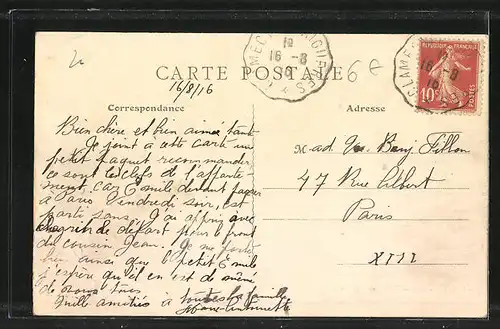 RÉPUBLIQUE FRANÇAISE
10c
POSTES
16-8
16-8
CARTE POSTALE
6 e
16/8/16
Correspondance
Adresse
Bien chère et bien aimée tante
Je joint à cette carte un
petit paquet recommander
ce sont les clefs de l'apparte
ment. Car Emile devant passer
à Vendredi soir, est
parti sans. J'ai appris avec
chagrin de départ pour le front
du cousin Jean. Je me porte
bien ainsi que petit Emile
j'espère qu'il en est de même
de vous tous
Mille amitiés à toute la famille
Marie-Antoinette
Mad. Vve Benj. Fillon
47 Rue
Paris
XIII